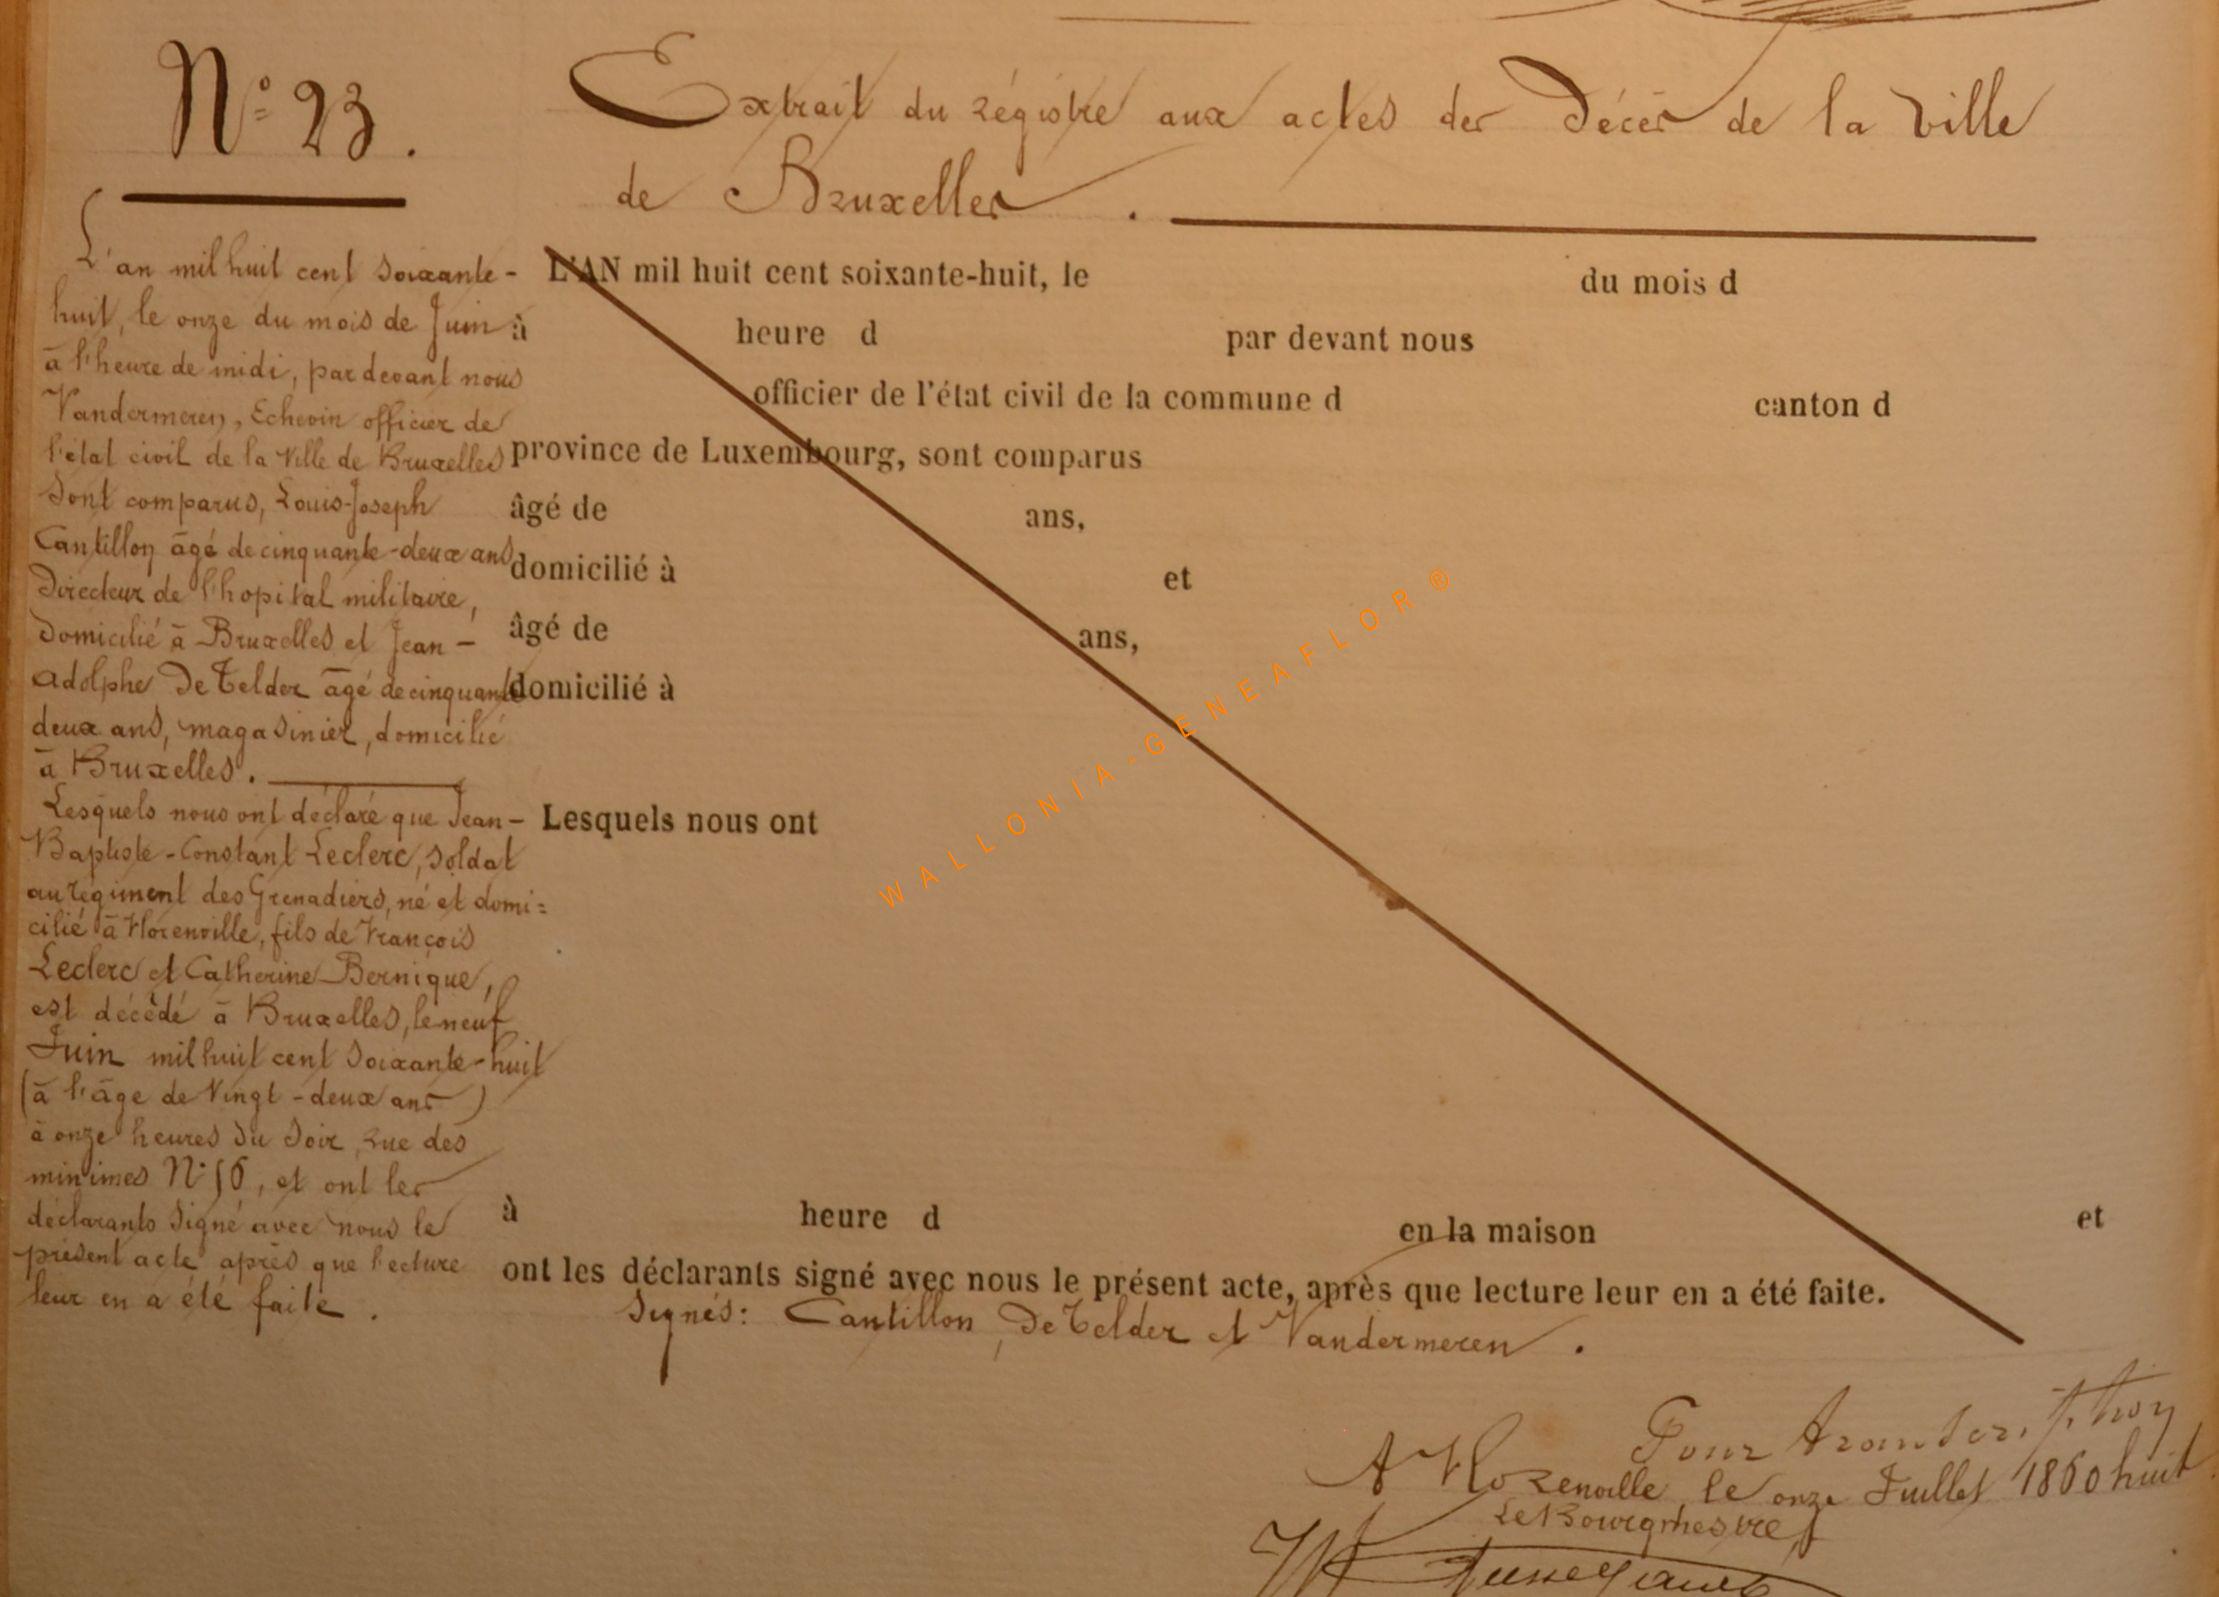 N° 23.
Extrait du régistre aux actes des Décès de la ville
de Bruxelles.
L'an mil huit cent soixante-
huit, le onze du mois de Juin
à l'heure de midi, par devant nous
Vandermeren, Echevin officier de
l'état civil de la Ville de Bruxelles
sont comparus, Louis-Joseph
Cantillon âgé de cinquante-deux ans
Directeur de l'hopital militaire,
domicilié à Bruxelles et Jean-
Adolphe De Telder âgé de cinquante
deux ans, magasinier, domicilié
à Bruxelles.
Lesquels nous ont déclaré que Jean-
Baptiste-Constant Leclerc, soldat
au régiment des Grenadiers, né et domi=
cilié à Florenville, fils de François
Leclerc et Catherine Bernique,
est décédé à Bruxelles, le neuf
Juin mil huit cent soixante-huit
(à l'âge de Vingt-deux ans)
à onze heures du soir, rue des
minimes N° 16, et ont les
déclarants signé avec nous le
présent acte après que lecture
leur en a été faite.
L'AN mil huit cent soixante-huit, le du mois d
à heure d par devant nous
officier de l'état civil de la commune d canton d
province de Luxembourg, sont comparus
âgé de ans,
domicilié à et
âgé de ans,
domicilié à
Lesquels nous ont
à heure d en la maison et
ont les déclarants signé avec nous le présent acte, après que lecture leur en a été faite.
Signés: Cantillon, De Telder et Vandermeren.
Pour transcription
A Florenville, le onze Juillet 1860 huit
Le Bourgmestre
WALLONIA-GENEAFLOR®